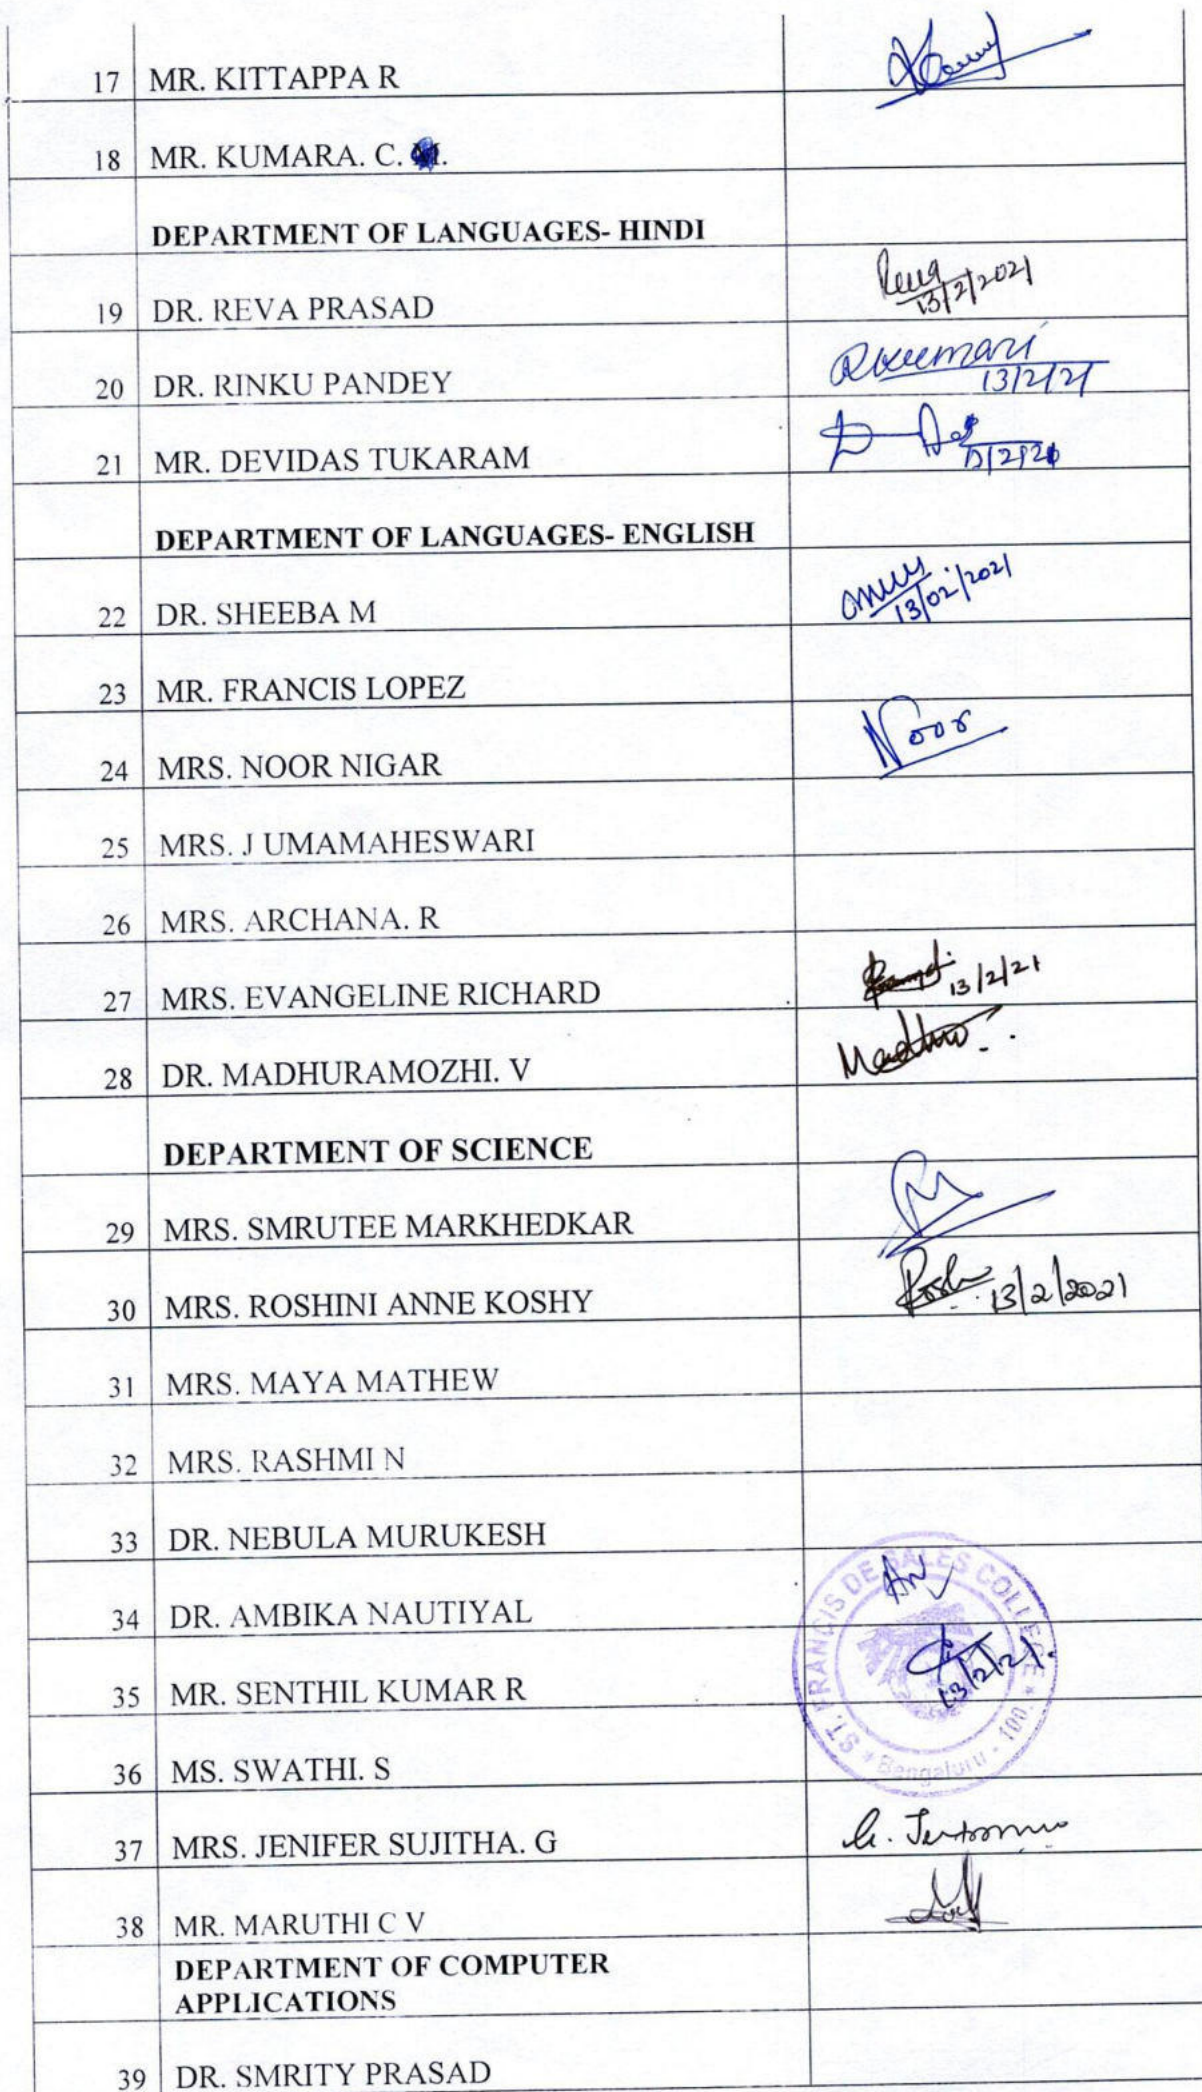 17 MR. KITTAPPA R
18 MR. KUMARA. C.
DEPARTMENT OF LANGUAGES- HINDI
19 DR. REVA PRASAD 13/2/2021
20 DR. RINKU PANDEY Rkumari 13/2/21
21 MR. DEVIDAS TUKARAM
DEPARTMENT OF LANGUAGES- ENGLISH
22 DR. SHEEBA M 13/02/2021
23 MR. FRANCIS LOPEZ
24 MRS. NOOR NIGAR Noor
25 MRS. J UMAMAHESWARI
26 MRS. ARCHANA. R
27 MRS. EVANGELINE RICHARD 13/2/21
28 DR. MADHURAMOZHI. V
DEPARTMENT OF SCIENCE
29 MRS. SMRUTEE MARKHEDKAR
30 MRS. ROSHINI ANNE KOSHY 13/2/2021
31 MRS. MAYA MATHEW
32 MRS. RASHMI N
33 DR. NEBULA MURUKESH
34 DR. AMBIKA NAUTIYAL AN
35 MR. SENTHIL KUMAR R 13/2/21.
ST. FRANCIS DE SALES COLLEGE * Bengaluru - 100. *
36 MS. SWATHI. S
37 MRS. JENIFER SUJITHA. G
38 MR. MARUTHI C V
DEPARTMENT OF COMPUTER
APPLICATIONS
39 DR. SMRITY PRASAD